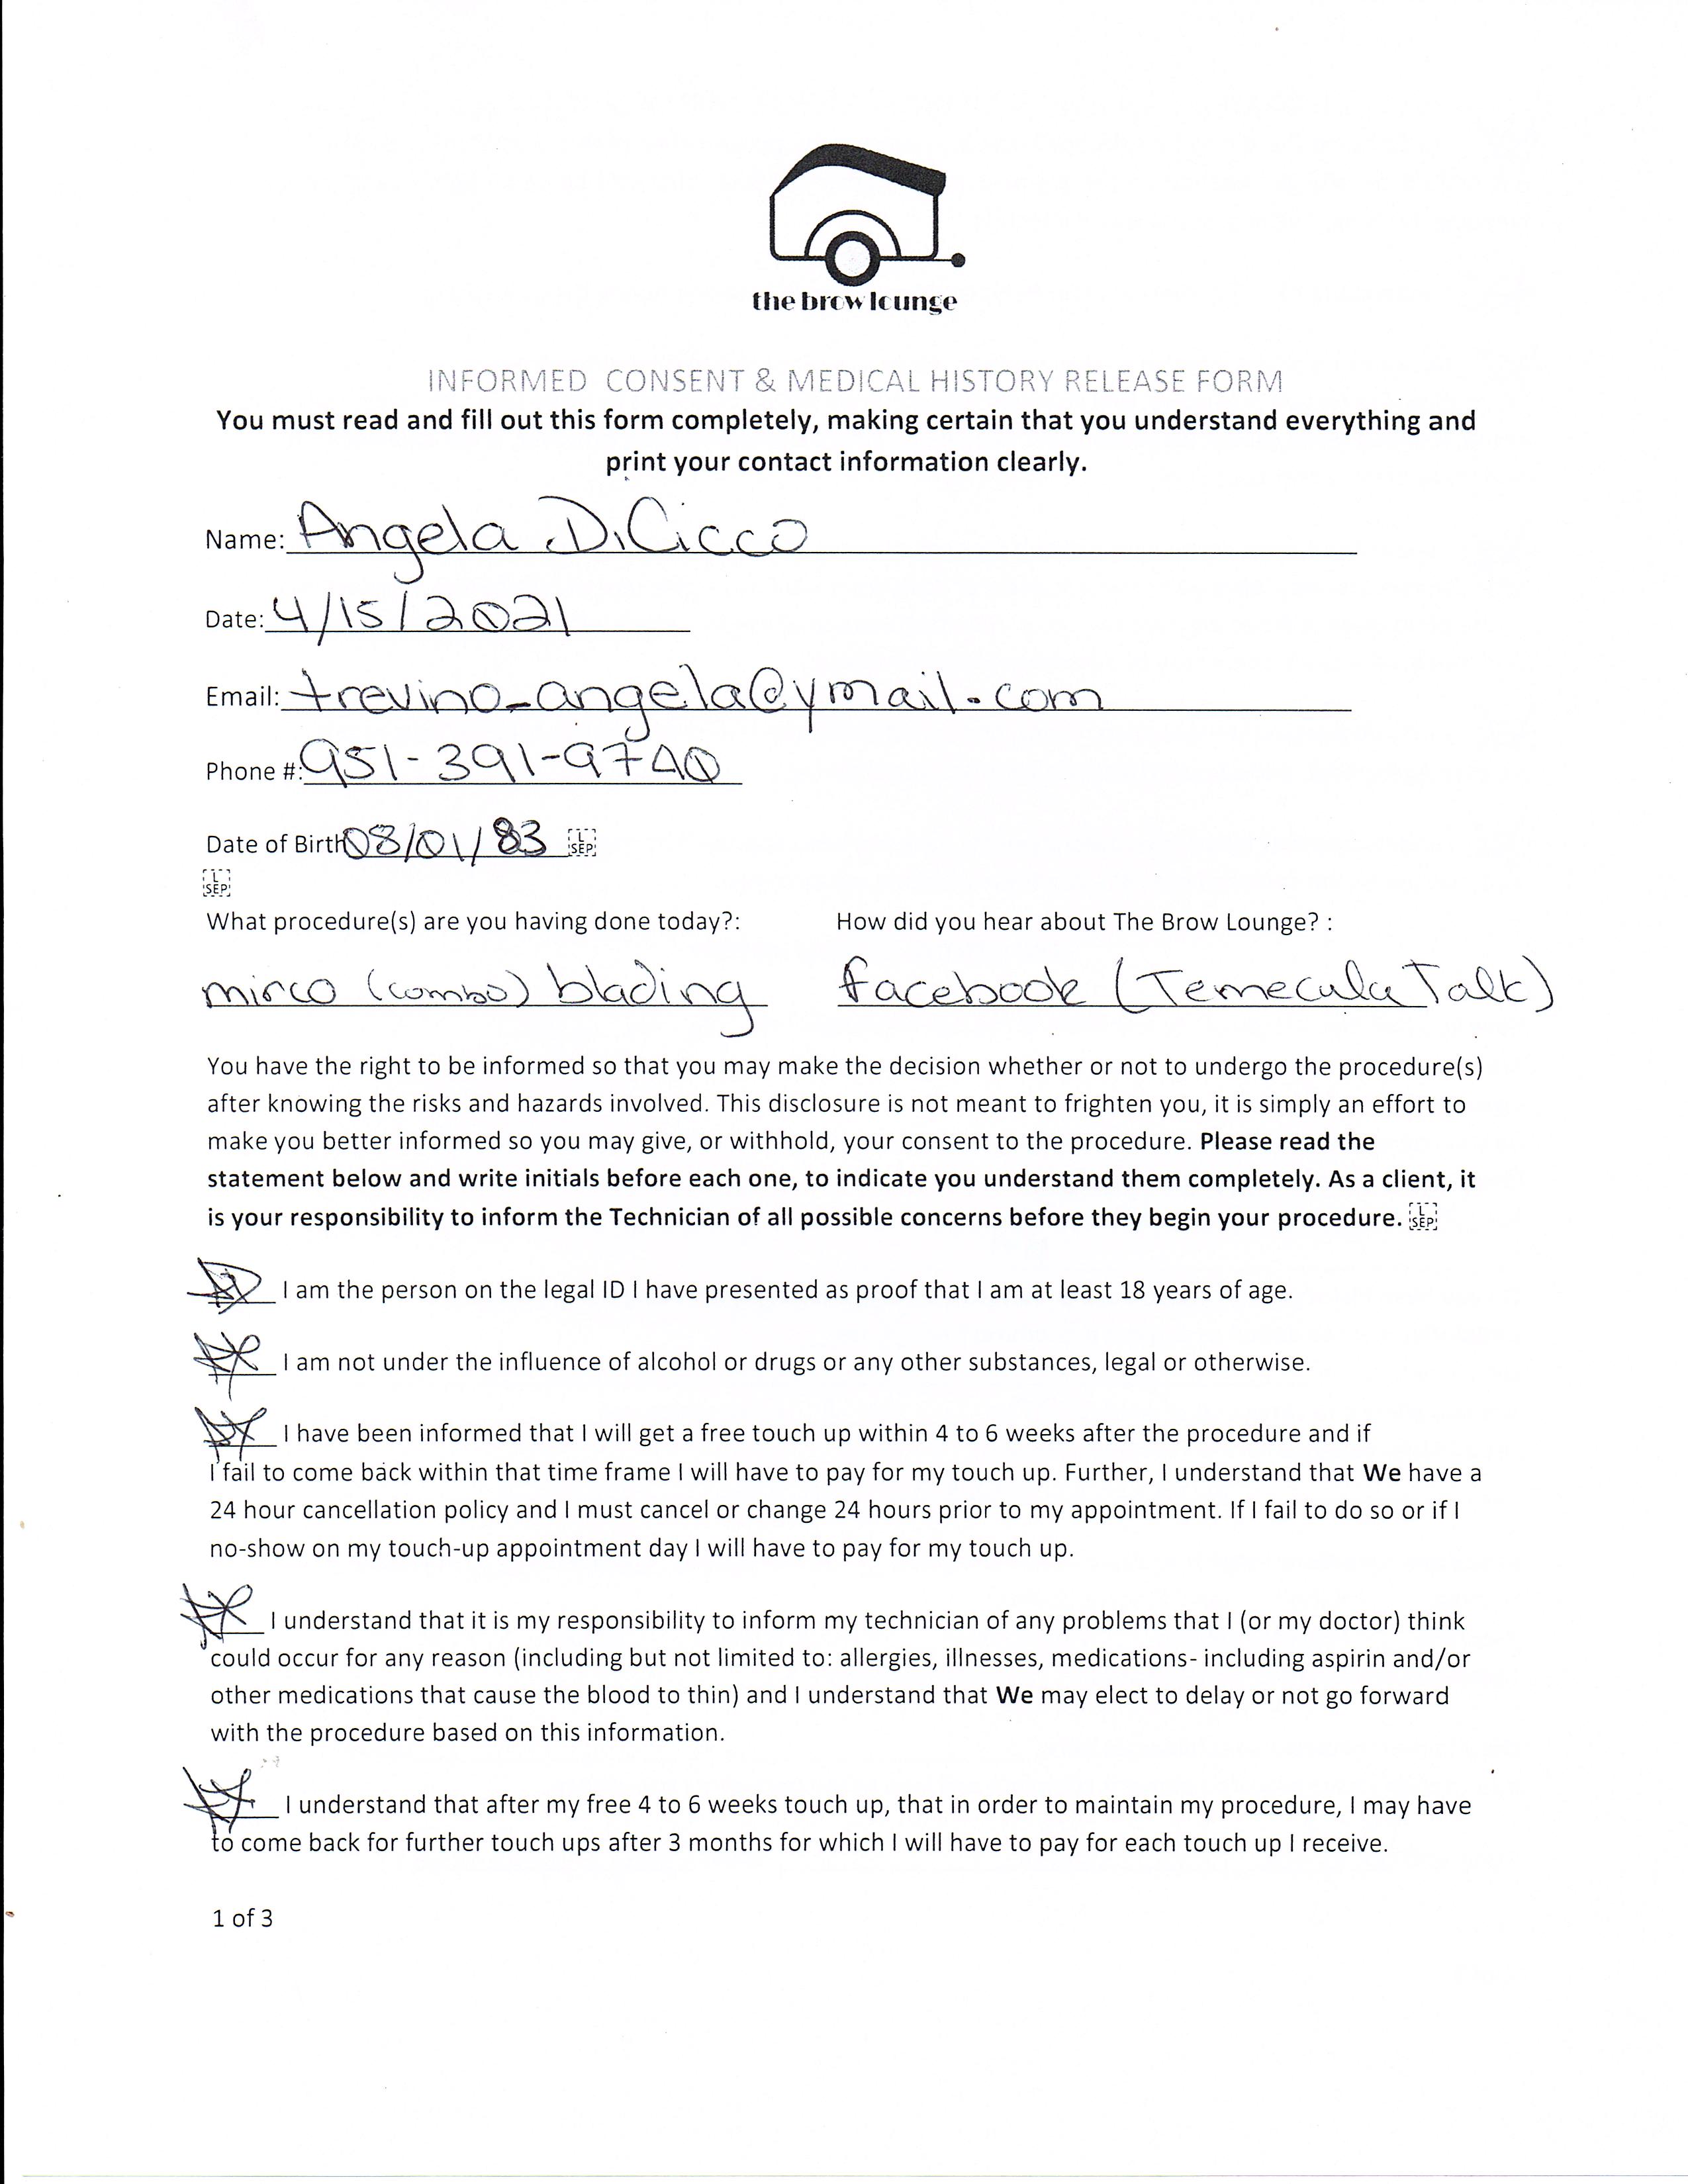 the brow lounge
INFORMED CONSENT & MEDICAL HISTORY RELEASE FORM
You must read and fill out this form completely, making certain that you understand everything and
print your contact information clearly.
Name: Angela DiCicco
Date: 4/15/2021
Email: trevino_angela@ymail.com
Phone #: 951-391-9740
Date of Birth 08/01/83 L SEP
L SEP
What procedure(s) are you having done today?: How did you hear about The Brow Lounge? :
mirco (combo) blading facebook (Temecula Talk)
You have the right to be informed so that you may make the decision whether or not to undergo the procedure(s)
after knowing the risks and hazards involved. This disclosure is not meant to frighten you, it is simply an effort to
make you better informed so you may give, or withhold, your consent to the procedure. Please read the
statement below and write initials before each one, to indicate you understand them completely. As a client, it
is your responsibility to inform the Technician of all possible concerns before they begin your procedure. L SEP
I am the person on the legal ID I have presented as proof that I am at least 18 years of age.
I am not under the influence of alcohol or drugs or any other substances, legal or otherwise.
I have been informed that I will get a free touch up within 4 to 6 weeks after the procedure and if
I fail to come back within that time frame I will have to pay for my touch up. Further, I understand that We have a
24 hour cancellation policy and I must cancel or change 24 hours prior to my appointment. If I fail to do so or if I
no-show on my touch-up appointment day I will have to pay for my touch up.
I understand that it is my responsibility to inform my technician of any problems that I (or my doctor) think
could occur for any reason (including but not limited to: allergies, illnesses, medications- including aspirin and/or
other medications that cause the blood to thin) and I understand that We may elect to delay or not go forward
with the procedure based on this information.
I understand that after my free 4 to 6 weeks touch up, that in order to maintain my procedure, I may have
to come back for further touch ups after 3 months for which I will have to pay for each touch up I receive.
1 of 3